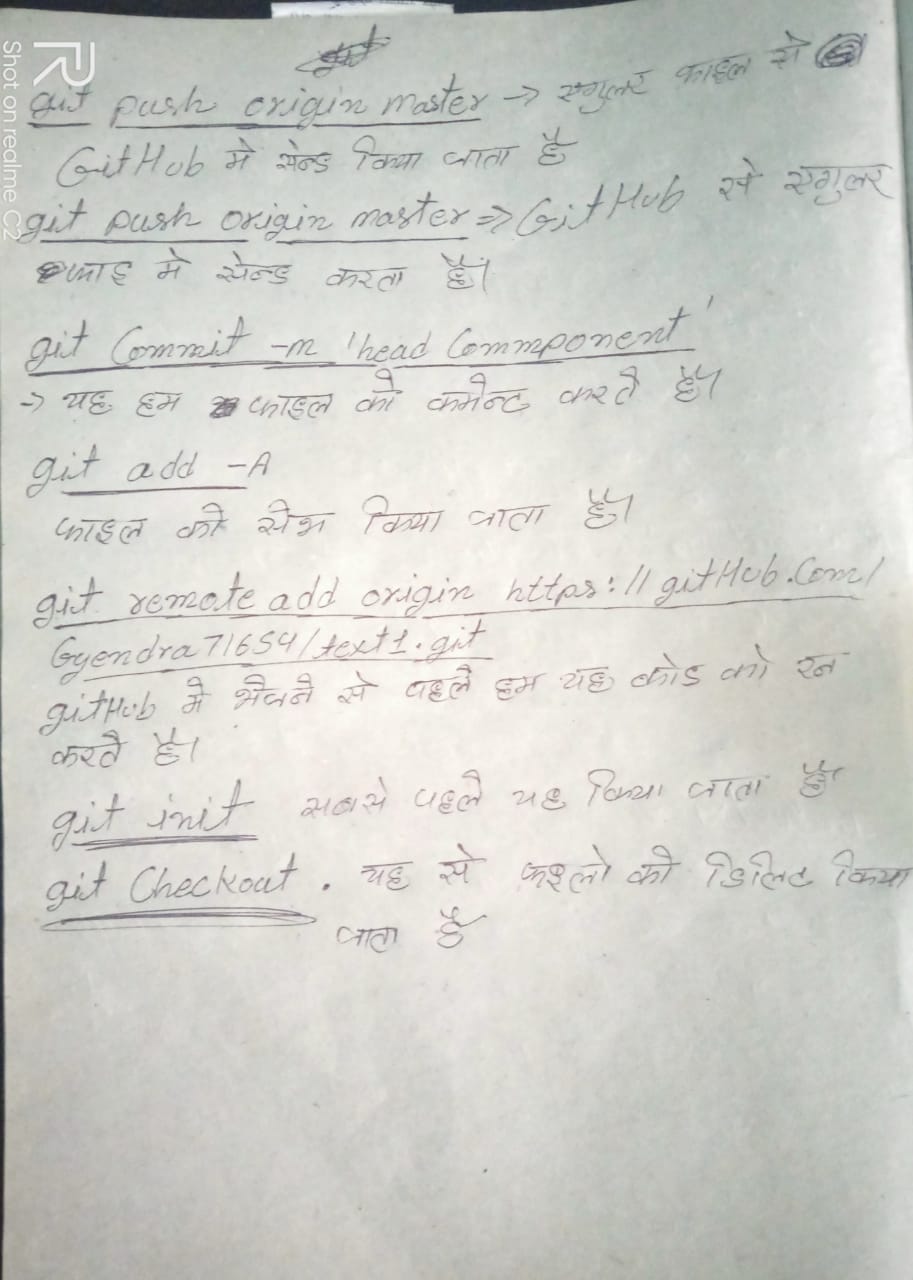 git push origin master → एगुलर फाइल से
GitHub मे सेन्ड किया जाता है
git push origin master => GitHub से एगुलर
फाइ मे सेन्ड करता है।
git Commit -m 'head Commponent'
→ यह हम फाइल को कमेन्ट करते है।
git add -A
फाइल को सेभ किया जाता है।
git remote add origin https://gitHub.Com/
Gyendra71654/text1.git
gitHub मे भेजने से पहले हम यह कोड को रन
करते है।
git init सबसे पहले यह किया जाता है
git Checkout . यह से फाइलो को डिलिट किया
जाता है
Shot on realme C2